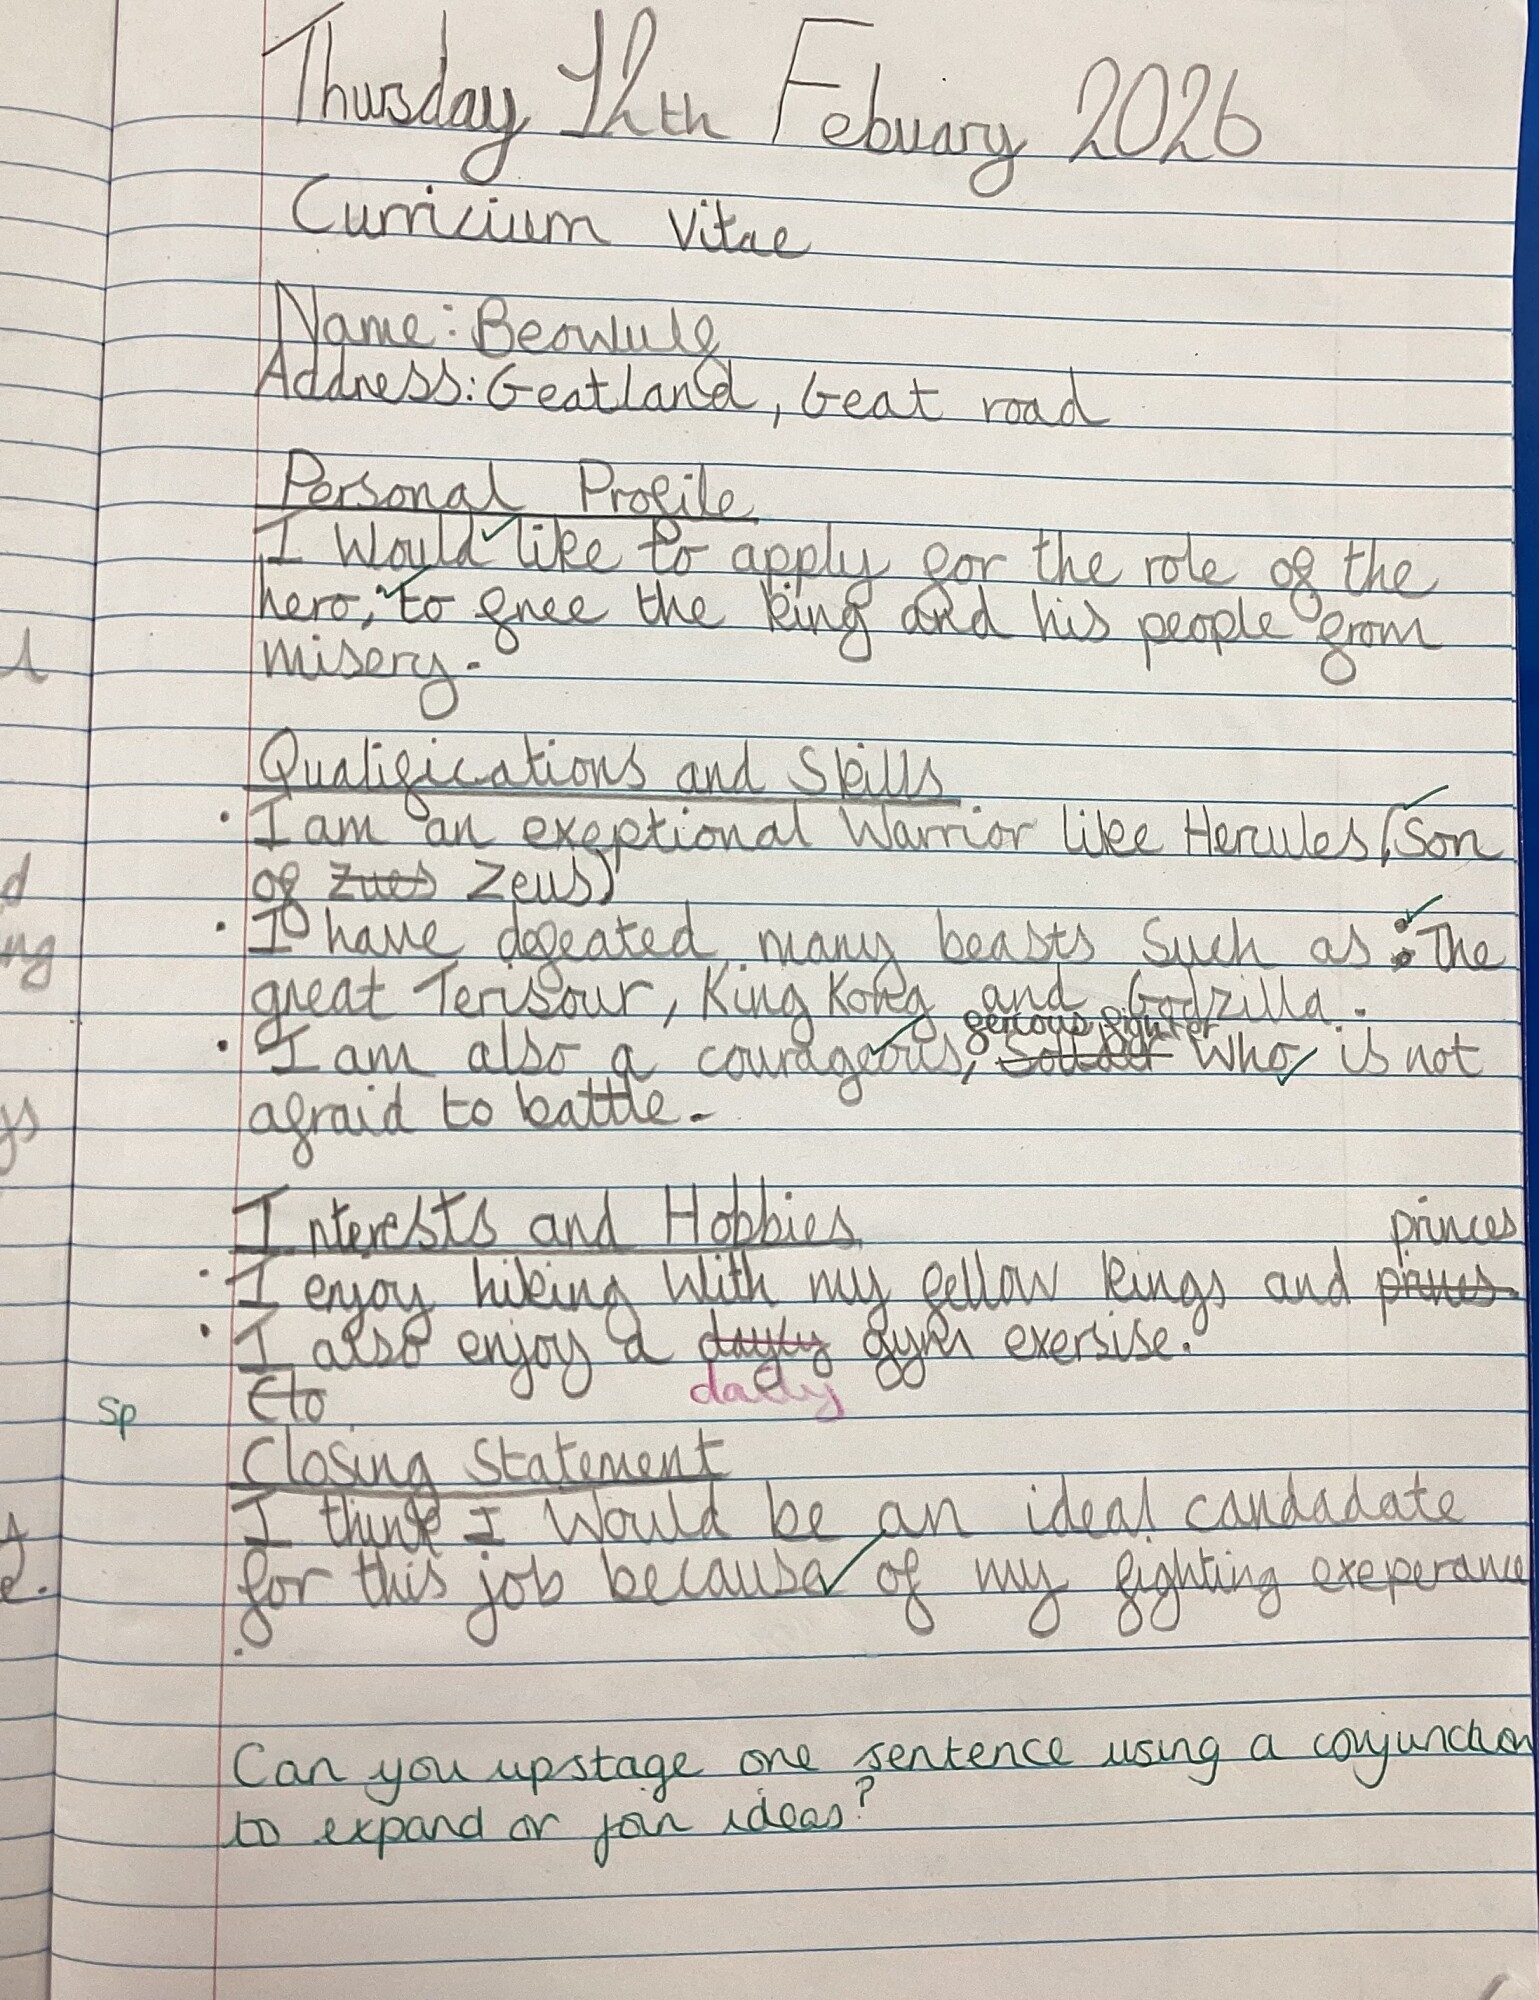 Thursday 12th Febuary 2026
Curricium Vitae
Name: Beowulf
Address: Geatland, Geat road
Personal Profile
I would like to apply for the role of the
hero, to free the king and his people from
misery.
Qualifications and Skills
• I am an exeptional warrior like Hercules (Son
of Zues Zeus)
• I have defeated many beasts such as: The
great Terisour, King Kong and Godzilla.
ferious fighter
• I am also a courageous, who is not
afraid to battle.
Interests and Hobbies
princes
• I enjoy hiking with my fellow kings and
• I also enjoy a dayly gym exersise.
daily
sp
Closing Statement
I think I would be an ideal candadate
for this job because of my fighting exeperance
.
Can you upstage one sentence using a conjunction
to expand or join ideas?